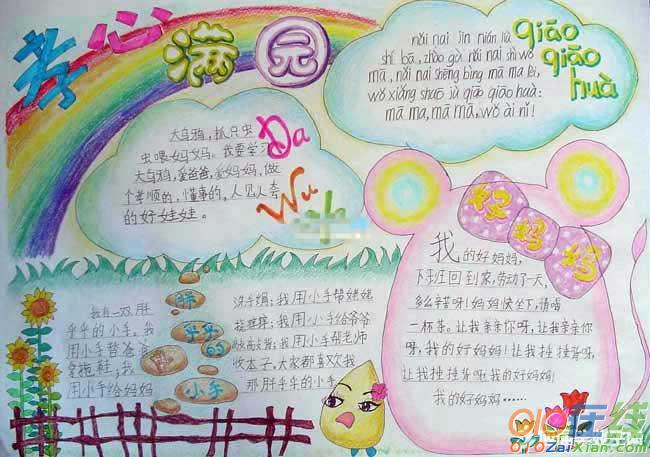 孝心满园
大乌鸦，抓只虫
虫喂妈妈。我要学习
大乌鸦，爱爸爸，爱妈妈，做
个孝顺的，懂事的，人见人夸
的好娃娃。
Da
Wu
qiāo
qiǎo
huà
nǎi nai jīn nián liù
shí bā, zhào gù nǎi nai shì wǒ
mā, nǎi nai shēng bìng mā ma
wǒ xiǎng shuō jù qiāo qiāo huà:
mā ma, mā mā, wǒ ài nǐ!
好妈妈
我的好妈妈，
下班回到家，劳动了一天，
多么辛苦呀！妈妈快坐下，请喝
一杯茶。让我亲亲你呀，让我亲亲你
呀，我的好妈妈！让我捶捶背呀，
让我捶捶背呀，我的好妈妈！
我的好妈妈……
胖
乎乎
的
小手
我有一双胖
乎乎的小手。我
用小手替爸爸
拿拖鞋；我
用小手给妈妈
洗手绢；我用小手帮姥姥
挠痒痒；我用小手给爷爷
我用小手帮老师
收本子，大家都喜欢我
那胖乎乎的小手
010在线
010ZaiXian.Com